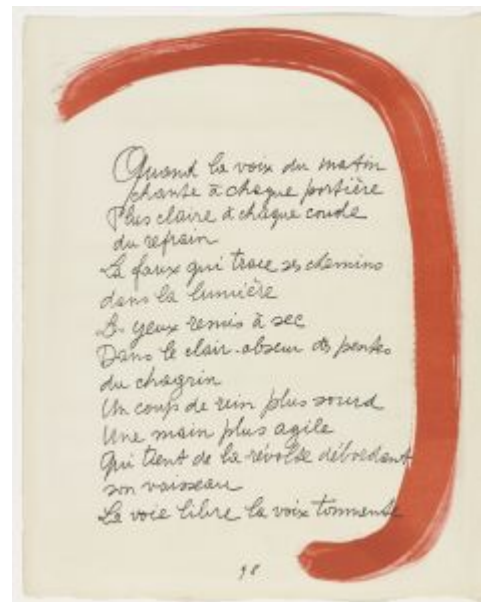 Quand la voix du matin
chante à chaque portière
Plus claire à chaque coude
du refrain
La faux qui trace ses chemins
dans la lumière
Les yeux remis à sec
Dans le clair-obscur des pentes
du chagrin
Un coup de rein plus sourd
Une main plus agile
Qui tient de la révolte débordant
son vaisseau
La voie libre la voix tonnante
98